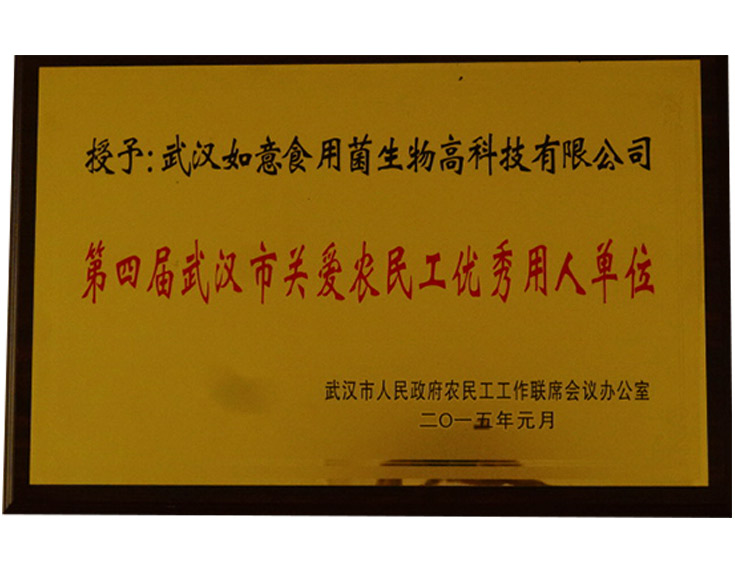 授予:武汉如意食用菌生物高科技有限公司
第四届武汉市关爱农民工优秀用人单位
武汉市人民政府农民工工作联席会议办公室
二〇一五年元月